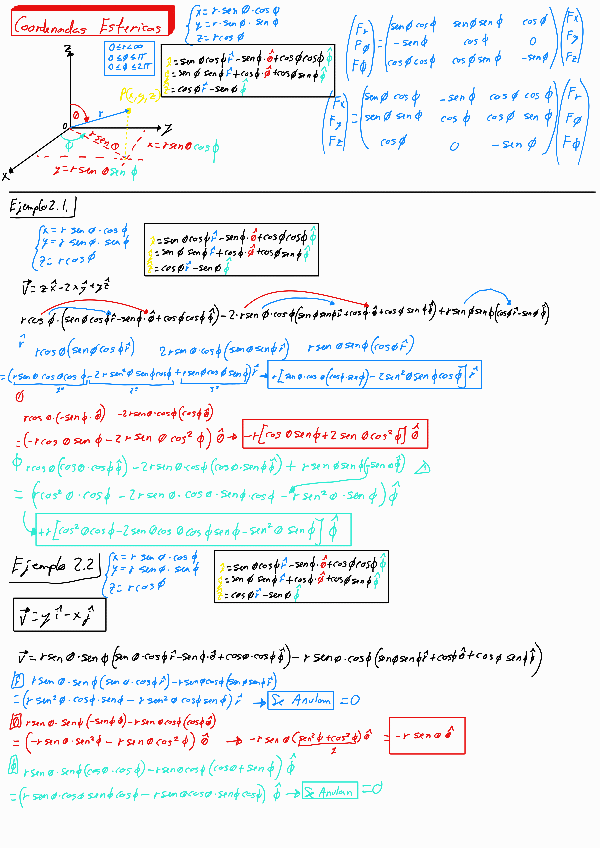 Coordenadas Esfericas
x = r·senθ·cosϕ
y = r·senθ·senϕ
z = r cosθ
0≤r<∞
0≤θ≤π
0≤ϕ≤2π
x̂ = senθ cosϕ r̂ - senϕ·θ̂ + cosθ cosϕ ϕ̂
ŷ = senθ senϕ r̂ + cosϕ·θ̂ + cosθ senϕ ϕ̂
ẑ = cosθ r̂ - senθ ϕ̂
(Fr Fθ Fϕ) = (senθ cosϕ senθ senϕ cosθ
-senϕ cosϕ 0
cosθ cosϕ cosθ senϕ -senθ) (Fx Fy Fz)
(Fx Fy Fz) = (senθ cosϕ -senϕ cosθ cosϕ
senθ senϕ cosϕ cosθ senϕ
cosθ 0 -senθ) (Fr Fθ Fϕ)
Z
P(x,y,z)
θ r
0
ϕ r senθ
x = r senθ cosϕ
X
y = r senθ senϕ
Ejemplo 2.1.
x = r senθ·cosϕ
y = r senθ·senϕ
z = r cosθ
x̂ = senθ cosϕ r̂ - senϕ·θ̂ + cosθ cosϕ ϕ̂
ŷ = senθ senϕ r̂ + cosϕ·θ̂ + cosθ senϕ ϕ̂
ẑ = cosθ r̂ - senθ ϕ̂
V⃗ = z x̂ - 2x ŷ + y ẑ
r cosθ·(senθ cosϕ r̂ - senϕ·θ̂ + cosθ cosϕ ϕ̂) - 2·r senθ·cosϕ (senθ senϕ r̂ + cosϕ·θ̂ + cosθ senϕ ϕ̂) + r senθ senϕ (cosθ r̂ - senθ ϕ̂)
r̂
r cosθ (senθ cosϕ r̂) 2r senθ·cosϕ (senθ senϕ r̂) r senθ senϕ (cosθ r̂)
= (r senθ cosθ cosϕ - 2r sen²θ senϕ cosϕ + r senθ cosθ senϕ) r̂ → r[senθ·cosθ (cosϕ + senϕ) - 2sen²θ senϕ cosϕ] r̂
θ
r cosθ·(-senϕ·θ̂) - 2r senθ·cosϕ (cosϕ θ̂)
= (-r cosθ senϕ - 2r senθ cos²ϕ) θ̂ → -r[cosθ senϕ + 2 senθ cos²ϕ] θ̂
ϕ r cosθ (cosθ·cosϕ ϕ̂) - 2r senθ cosϕ (cosθ·senϕ ϕ̂) + r senθ senϕ (-senθ ϕ̂)
= (r cos²θ·cosϕ - 2r senθ·cosθ·senϕ·cosϕ - r sen²θ·senϕ) ϕ̂
+r[cos²θ cosϕ - 2 senθ cosθ cosϕ senϕ - sen²θ senϕ] ϕ̂
Ejemplo 2.2
x = r senθ·cosϕ
y = r senθ·senϕ
z = r cosθ
x̂ = senθ cosϕ r̂ - senϕ·θ̂ + cosθ cosϕ ϕ̂
ŷ = senθ senϕ r̂ + cosϕ·θ̂ + cosθ senϕ ϕ̂
ẑ = cosθ r̂ - senθ ϕ̂
V⃗ = y x̂ - x ŷ
V⃗ = r senθ·senϕ (senθ·cosϕ r̂ - senϕ·θ̂ + cosθ·cosϕ ϕ̂) - r senθ·cosϕ (senθ senϕ r̂ + cosϕ θ̂ + cosθ senϕ ϕ̂)
r̂ r senθ·senϕ (senθ·cosϕ r̂) - r senθ cosϕ (senθ senϕ r̂)
= (r sen²θ·cosϕ·senϕ - r sen²θ cosϕ senϕ) r̂ → Se Anulan = 0
θ r senθ·senϕ (-senϕ θ̂) - r senθ cosϕ (cosϕ θ̂)
= (-r senθ·sen²ϕ - r senθ cos²ϕ) θ̂ → -r senθ (sen²ϕ + cos²ϕ) θ̂ = -r senθ θ̂
1
ϕ r senθ·senϕ (cosθ·cosϕ) - r senθ cosϕ (cosθ senϕ) ϕ̂
= (r senθ·cosθ senϕ cosϕ - r senθ cosθ·senϕ cosϕ) ϕ̂ → Se Anulan = 0